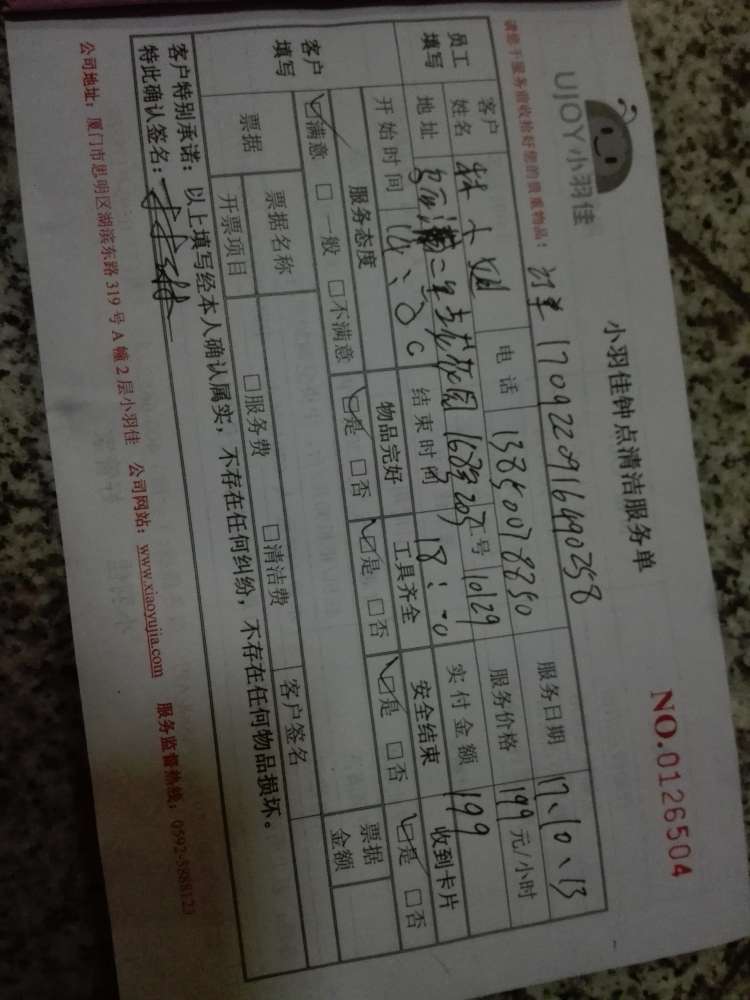 UJOY小羽佳
小羽佳钟点清洁服务单
NO.0126504
请您于服务前收拾好您的贵重物品: 订单 1709220916490258
员工填写
客户姓名 林小姐 电话 13850078850 服务日期 17、10、13
地址 二里 花园 168号203 工号 10129 服务价格 199 元/小时
开始时间 结束时间 18: 实付金额 199
客户填写
服务态度 物品完好 工具齐全 安全结束 收到卡片
☑满意 □一般 □不满意 ☑是 □否 ☑是 □否 ☑是 □否 ☑是 □否
票据 票据名称 票据金额
开票项目 □服务费 □清洁费 客户签名
客户特别承诺: 以上填写经本人确认属实,不存在任何纠纷,不存在任何物品损坏。
特此确认签名:
公司地址: 厦门市思明区湖滨东路 319 号 A 幢 2 层小羽佳 公司网站: www.xiaoyujia.com 服务监督热线: 0592-5888123